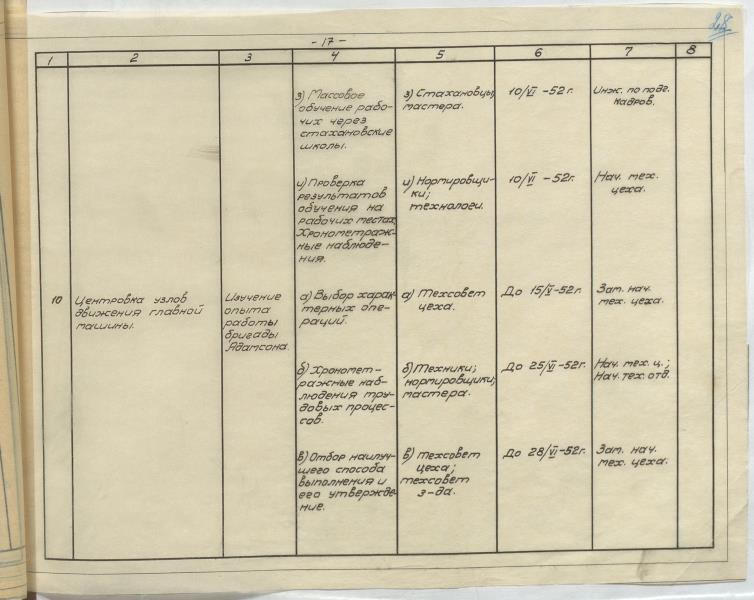 28
- 17 -
1 2 3 4 5 6 7 8
з) Массовое
обучение рабо-
чих через
стахановские
школы.
з) Стахановцы,
мастера.
10/VI -52 г.
Инж. по подг.
кадров.
и) Проверка
результатов
обучения на
рабочих местах,
Хронометраж-
ные наблюде-
ния.
и) Нормировщи-
ки;
технологи.
10/VI -52г.
Нач. мех.
цеха.
10
Центровка узлов
движения главной
машины.
Изучение
опыта
работы
бригады
Адамсона.
а) Выбор харак-
терных опе-
раций.
а) Техсовет
цеха.
До 15/V-52г.
Зам. нач.
мех. цеха.
б) Хрономет-
ражные наб-
людения тру-
довых процес-
сов.
б) Техники;
нормировщики;
мастера.
До 25/VI-52г.
Нач. мех. ц.;
Нач. тех. отд.
в) Отбор наилуч-
шего способа
выполнения и
его утвержде-
ние.
в) Техсовет
цеха;
техсовет
з-да.
До 28/VI-52г.
Зам. нач.
мех. цеха.